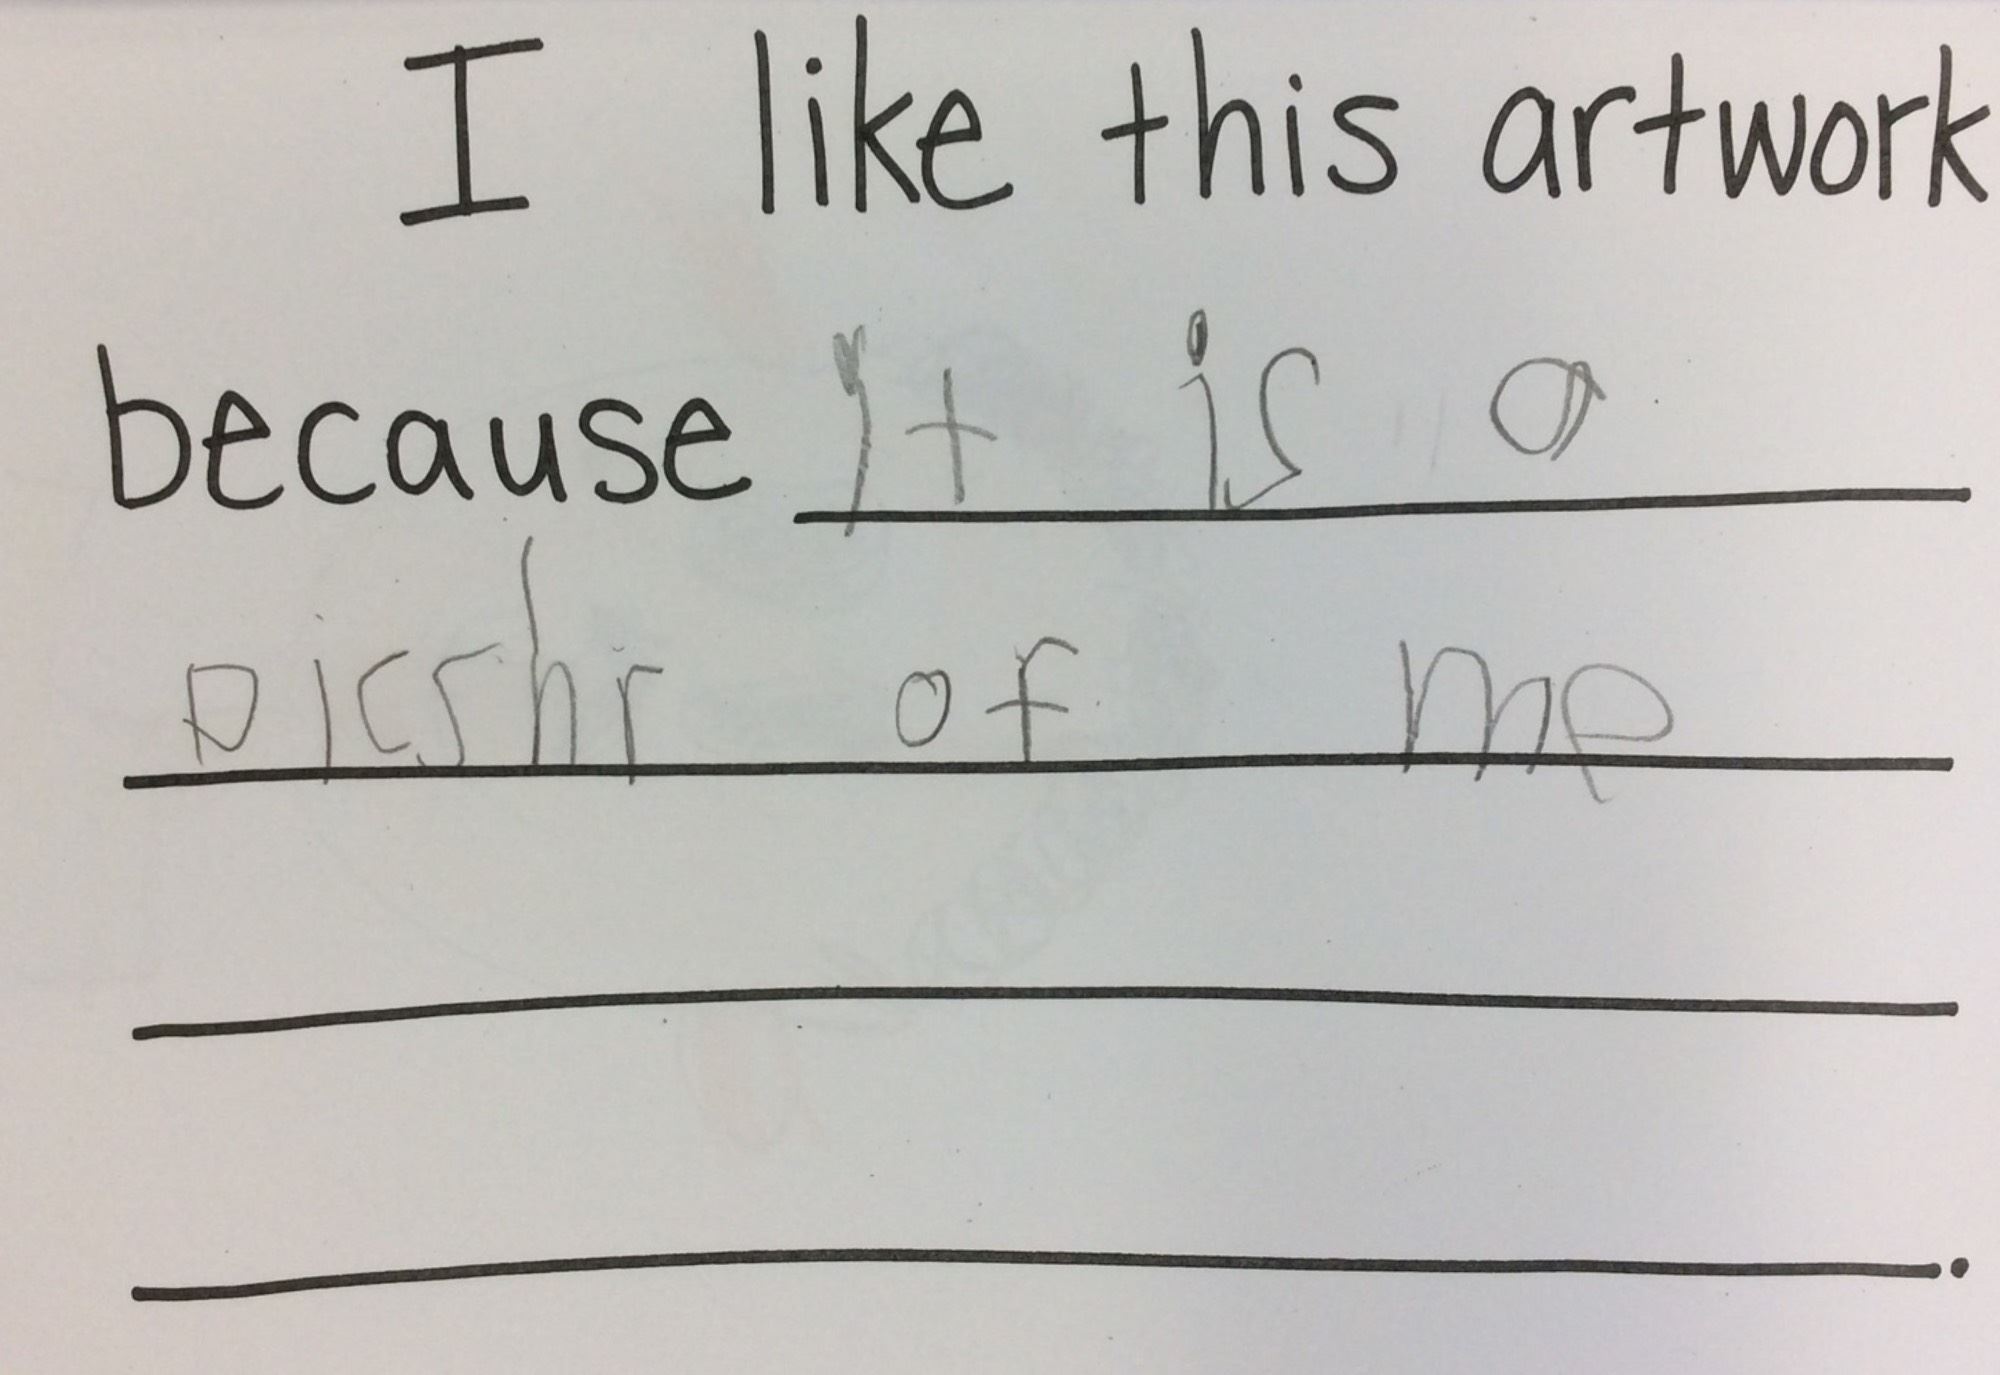 I like this artwork
because it is a
picshr of me
.